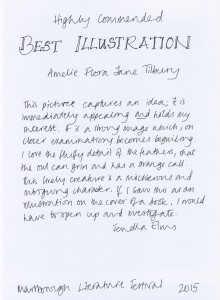 Highly Commended
BEST ILLUSTRATION
Amelie Flora Jane Tilbury
This picture captures an idea; it is
immediately appealing and holds my
interest. It's a strong image which, on
closer examination, becomes beguiling.
I love the fluffy detail of the feathers, that
the owl can grin and has a orange call.
This lively creature is a mischievous and
intriguing character. If I saw this as an
illustration on the cover of a book, I would
have to open up and investigate.
Marlborough Literature Festival 2015